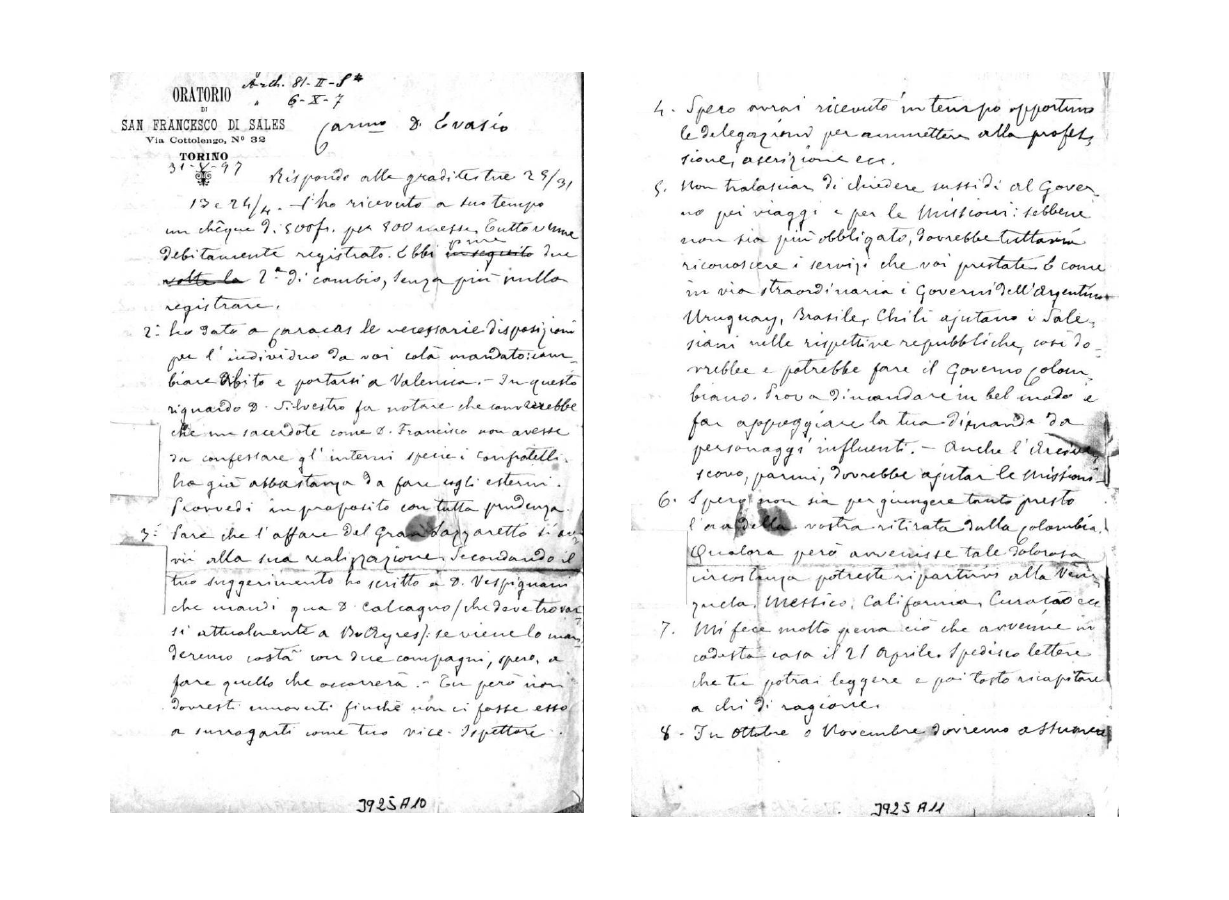 Arch. 81-II-8*
" 6-X-7
ORATORIO
DI
SAN FRANCESCO DI SALES
Via Cottolengo, Nº 32
TORINO
31-V-97
Carmo D. Evasio
Rispondo alle gradite tue 29/31
13 e 24/4. - 1º ho ricevuto a suo tempo
un chêque di 500fr. per 800 messe. Tutto venne
debitamente registrato. Ebbi in seguito due
volte la 2ª di cambio, senza più nulla
registrare.
2º ho dato a Caracas le necessarie disposizioni
per l'individuo da voi colà mandato: cam-
biare abito e portarsi a Valencia. - In questo
riguardo D. Silvestro fa notare che converrebbe
che un sacerdote come D. Francisco non avesse
da confessare gl'interni specie i confratelli.
ha già abbastanza da fare cogli esterni.
Provvedi in proposito con tutta prudenza
3º Pare che l'affare del Gran Lazzaretto si av-
vii alla sua realizzazione. Secondando il
tuo suggerimento ho scritto a D. Vespignani
che mandi qua D. Calcagno (che deve trovar
si attualmente a Bs Ayres): se viene lo man
deremo costà con due compagni, spero, a
fare quello che occorrerà. - Tu però non
dovresti muoverti finchè non ci fosse esso
a surrogarti come tuo vice-Ispettore.
J925A10
4. Spero avrai ricevuto in tempo opportuno
le delegazioni per ammettere alla profes-
sione, ascrizione ecc.
5. Non tralasciar di chiedere sussidi al Gover-
no pei viaggi e per le Missioni: sebbene
non sia più obbligato, dovrebbe tuttavia
riconoscere i servizi che voi prestate. E come
in via straordinaria i Governi dell'Argentina
Uruguay, Brasile, Chili ajutano i Sale-
siani nelle rispettive repubbliche, così do-
vrebbe e potrebbe fare il Governo Colom-
biano. Prova dimandare in bel modo e
far appoggiare la tua dimanda da
personaggi influenti. - Anche l'Arcive
scovo, parmi, dovrebbe ajutar le Missioni.
6. Spero non sia per giungere tanto presto
l'ora della vostra ritirata dalla Colombia.
Qualora però avvenisse tale dolorosa
circostanza potreste ripartirvi alla Vene
zuela, Messico, California, Curaçao ecc
7. Mi fece molto pena ciò che avvenne in
codesta casa il 21 Aprile. Spedisco lettere
che tu potrai leggere e poi tosto ricapitare
a chi di ragione.
8. In Ottobre o Novembre dovremo assumere
J925A11